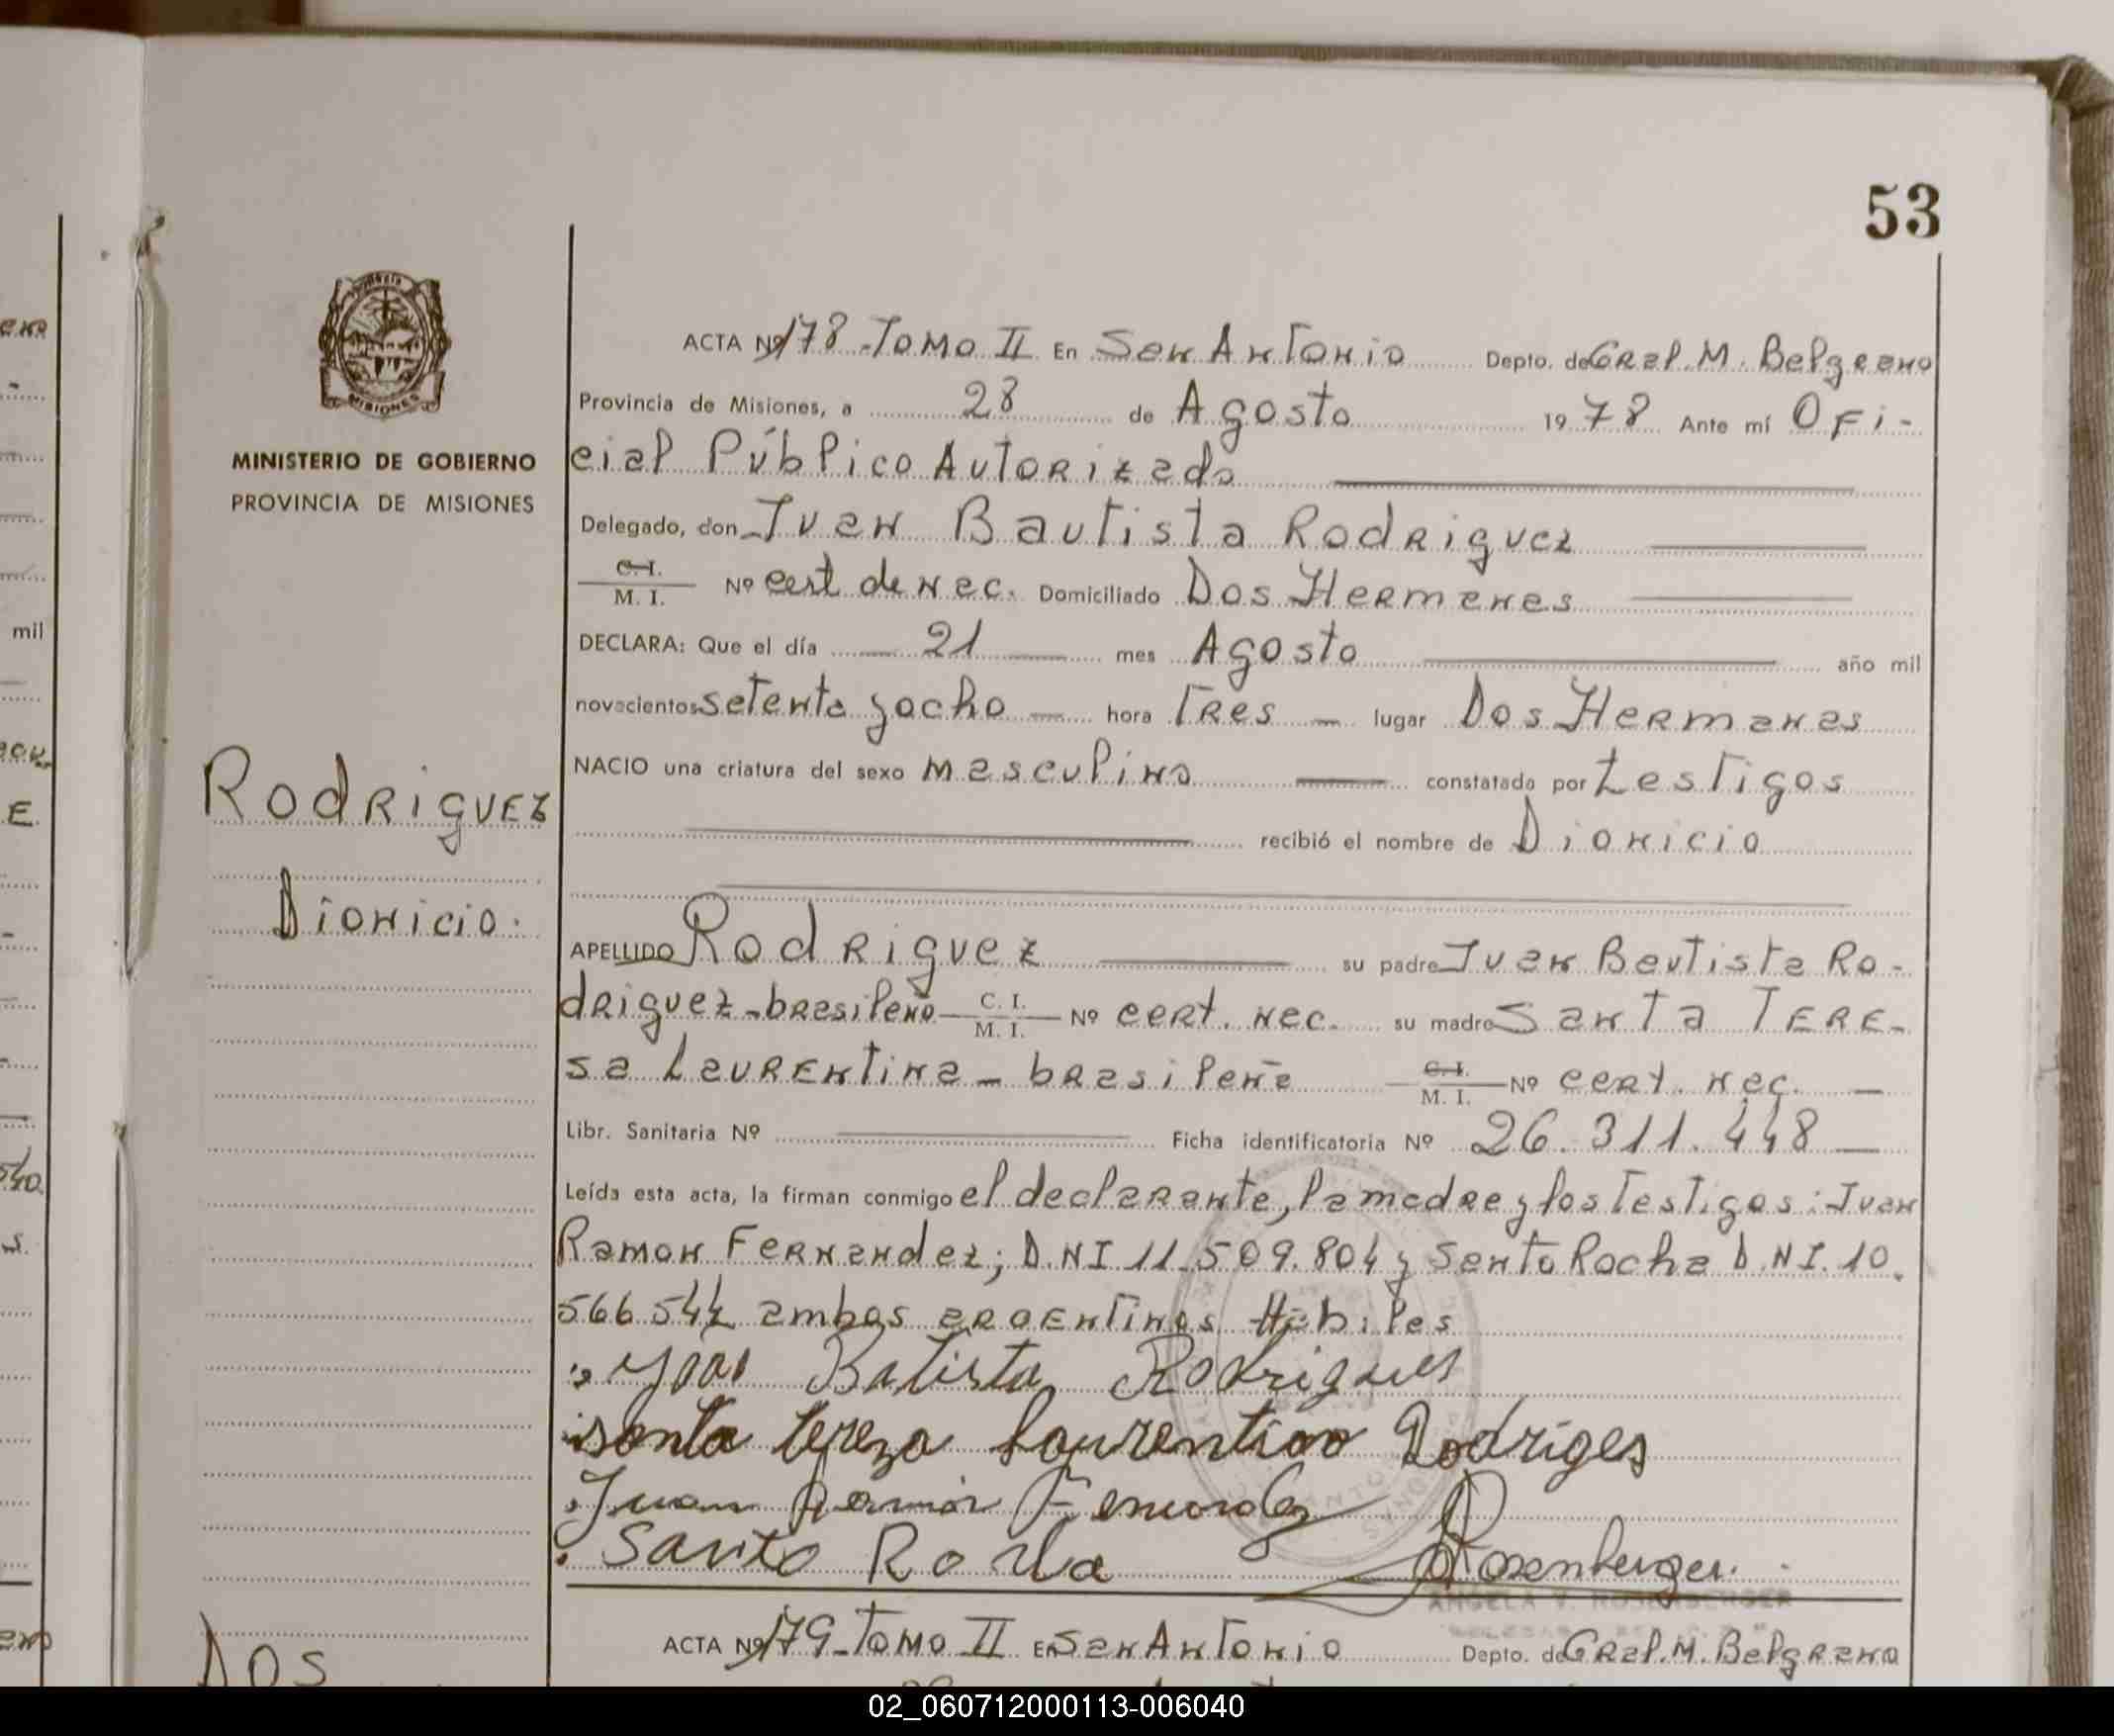 53
ACTA Nº 178 - Tomo II En San Antonio Depto. de Gral. M. Belgrano
Provincia de Misiones, a 28 de Agosto 1978 Ante mí Ofi-
cial Público Autorizado
Delegado, don Juan Bautista Rodriguez
C. I.
M. I. Nº cert de nac. Domiciliado Dos Hermanas
DECLARA: Que el día 21 mes Agosto año mil
novecientos setenta y ocho hora Tres lugar Dos Hermanas
NACIO una criatura del sexo masculino constatado por testigos
recibió el nombre de Dionicio
APELLIDO Rodriguez su padre Juan Bautista Ro-
driguez - brasileño C. I.
M. I. Nº cert. nac. su madre Santa Tere-
sa Laurentina - brasileña C. I.
M. I. Nº cert. nac. -
Libr. Sanitaria Nº Ficha identificatoria Nº 26.311.448
Leída esta acta, la firman conmigo el declarante, la madre y los Testigos: Juan
Ramon Fernandez; D.NI 11.509.804 y Santo Rocha D.NI. 10.
566544 ambos argentinos Habiles
Batista Rodrigues
santa tereza laurentina Rodriges
Juan Ramón Fernandez
Santo Rocha Rosenberger
ANGELA V. ROSENBERGER
MISIONES
MINISTERIO DE GOBIERNO
PROVINCIA DE MISIONES
Rodriguez
Dionicio.
ACTA Nº 179 - Tomo II En San Antonio Depto. de Gral. M. Belgrano
Dos
mil
E.
s.
02_060712000113-006040